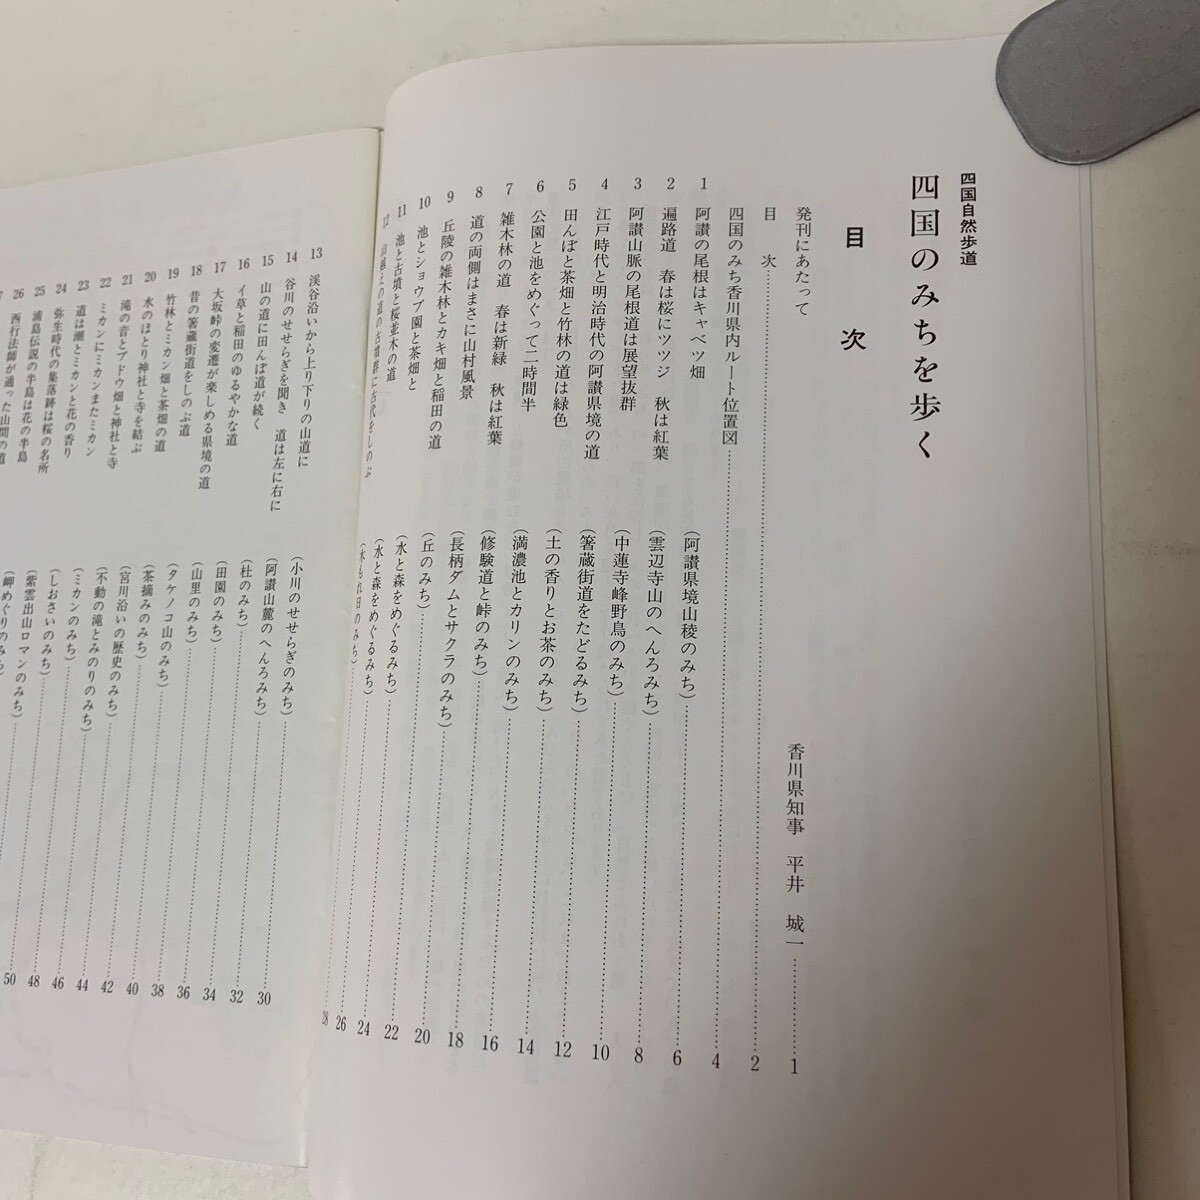 四国自然歩道
四国のみちを歩く
目 次
発刊にあたって 香川県知事 平井 城一 …… 1
目 次 …… 2
四国のみち香川県内ルート位置図 …… 4
1 阿讃の尾根はキャベツ畑 (阿讃県境山稜のみち) …… 6
2 遍路道 春は桜にツツジ 秋は紅葉 (雲辺寺山のへんろみち) …… 8
3 阿讃山脈の尾根道は展望抜群 (中蓮寺峰野鳥のみち) …… 10
4 江戸時代と明治時代の阿讃県境の道 (箸蔵街道をたどるみち) …… 12
5 田んぼと茶畑と竹林の道は緑色 (土の香りとお茶のみち) …… 14
6 公園と池をめぐって二時間半 (満濃池とカリンのみち) …… 16
7 雑木林の道 春は新緑 秋は紅葉 (修験道と峠のみち) …… 18
8 道の両側はまさに山村風景 (長柄ダムとサクラのみち) …… 20
9 丘陵の雑木林とカキ畑と稲田の道 (丘のみち) …… 22
10 池とショウブ園と茶畑と (水と森をめぐるみち) …… 24
11 池と古墳と桜並木の道 (水と森をめぐるみち) …… 26
12 山越えの道の古墳群に古代をしのぶ …… 28
13 渓谷沿いから上り下りの山道に (小川のせせらぎのみち) …… 30
14 谷川のせせらぎを聞き 道は左に右に (阿讃山麓のへんろみち) …… 32
15 山の道に田んぼ道が続く (杜のみち) …… 34
16 イ草と稲田のゆるやかな道 (田園のみち) …… 36
17 大坂峠の変遷が楽しめる県境の道 (山里のみち) …… 38
18 昔の箸蔵街道をしのぶ道 (タケノコ山のみち) …… 40
19 竹林とミカン畑と茶畑の道 (茶摘みのみち) …… 42
20 水のほとり神社と寺を結ぶ (宮川沿いの歴史のみち) …… 44
21 滝の音とブドウ畑と神社と寺 (不動の滝とみのりのみち) …… 46
22 ミカンにミカンまたミカン (ミカンのみち) …… 48
23 道は潮とミカンと花の香り (しおさいのみち) …… 50
24 弥生時代の集落跡は桜の名所 (紫雲出山ロマンのみち)
25 浦島伝説の半島は花の半島 (岬めぐりのみち)
26 西行法師が通った山間の道